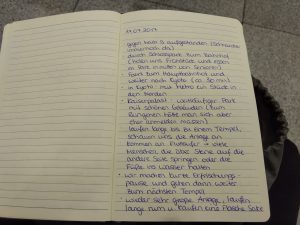 11.09.2017
gegen halb 8 aufgestanden (Schnarcher
immer noch da)
durch Schlosspark zum Bahnhof
(holen uns Frühstück und essen
im Park inmitten von Senioren)
Fahrt zum Hauptbahnhof und
weiter nach Kyoto (ca. 30 min)
in Kyoto: mit Metro ein Stück in
den Norden
Kaiserpalast: weitläufiger Park
mit schönen Gebäuden (zum
Reingehen hätte man sich aber
eher anmelden müssen)
laufen lange bis zu einem Tempel,
schauen uns die Anlage an
kommen an Flussufer → viele
Menschen, die über Steine auf die
andere Seite springen oder die
Füße ins Wasser halten
wir machen kurze Erfrischungs-
pause und gehen dann weiter
zum nächsten Tempel
wieder sehr große Anlage, laufen
lange rum u. kaufen eine Flasche Sake